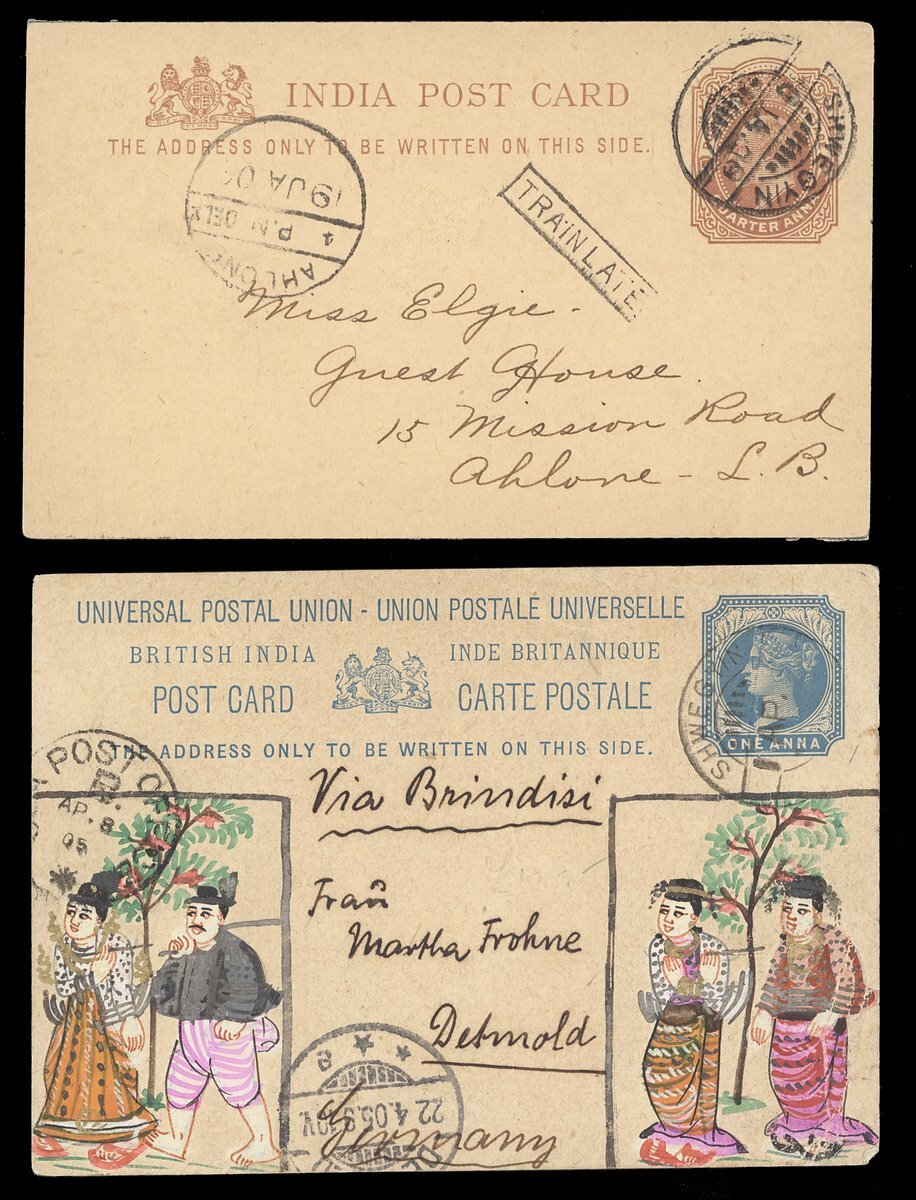 INDIA POST CARD
THE ADDRESS ONLY TO BE WRITTEN ON THIS SIDE.
SHWEGYIN
QUARTER ANNA
AHLONE
4 P.M. DELY
19 JA 0
TRAIN LATE
Miss Elgie.
Guest House.
15 Mission Road
Ahlone - L.B.
UNIVERSAL POSTAL UNION - UNION POSTALE UNIVERSELLE
BRITISH INDIA
INDE BRITANNIQUE
POST CARD
CARTE POSTALE
THE ADDRESS ONLY TO BE WRITTEN ON THIS SIDE.
ONE ANNA
SHWEGYIN
POST OF
AP. 8
05
Via Brindisi
Frau
Martha Frohne
Detmold
Germany
22.4.05.